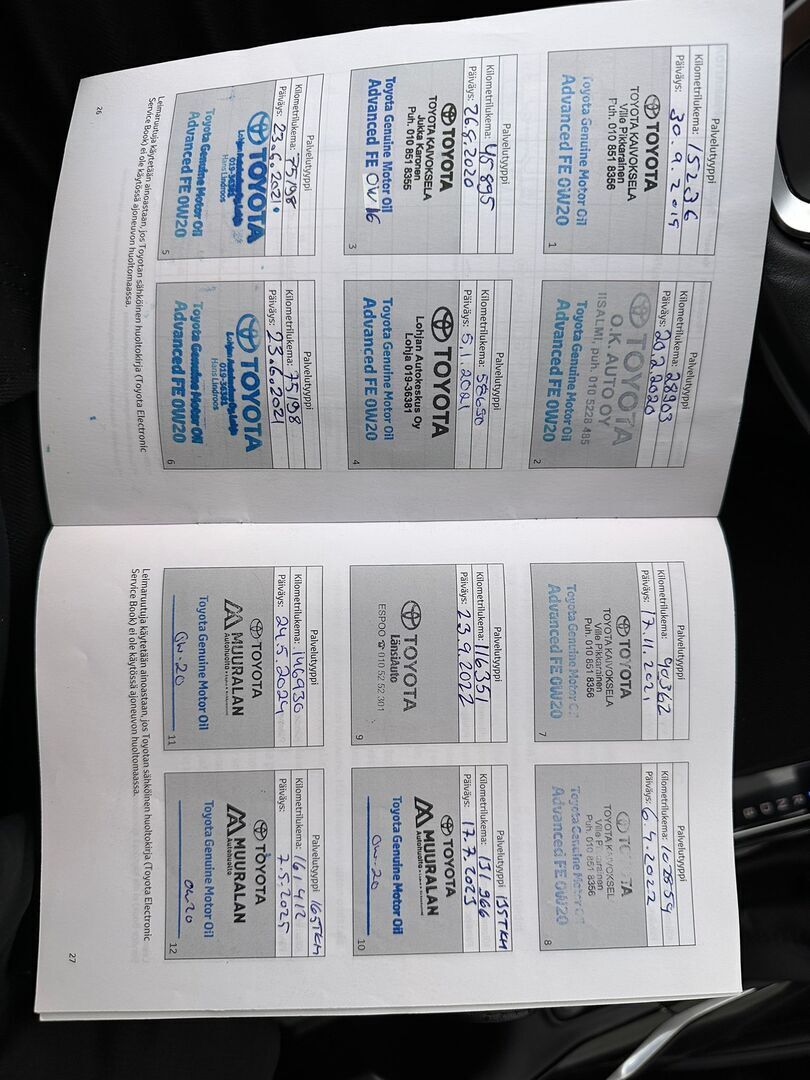 Palvelutyyppi
Kilometrilukema: 15236
Päiväys: 30.9.2019
TOYOTA
TOYOTA KAIVOKSELA
Ville Pikkarainen
Puh. 010 851 8356
Toyota Genuine Motor Oil
Advanced FE 0W20
1
Palvelutyyppi
Kilometrilukema: 28903
Päiväys: 20.2.2020
TOYOTA
O.K. AUTO OY
IISALMI, puh. 010 5228 485
Toyota Genuine Motor Oil
Advanced FE 0W20
2
Palvelutyyppi
Kilometrilukema: 45895
Päiväys: 26.8.2020
TOYOTA
TOYOTA KAIVOKSELA
Jukka Kanonen
Puh. 010 851 8356
Toyota Genuine Motor Oil
Advanced FE 0W16
3
Palvelutyyppi
Kilometrilukema: 58690
Päiväys: 5.1.2021
TOYOTA
Lohjan Autokeskus Oy
Lohja 019-36381
Toyota Genuine Motor Oil
Advanced FE 0W20
4
Palvelutyyppi
Kilometrilukema: 75198
Päiväys: 23.6.2021.
TOYOTA
Hans Lindroos
Toyota Genuine Motor Oil
Advanced FE 0W20
5
Palvelutyyppi
Kilometrilukema: 75198
Päiväys: 23.6.2021
TOYOTA
Hans Lindroos
Toyota Genuine Motor Oil
Advanced FE 0W20
6
Leimaruutuja käytetään ainoastaan, jos Toyotan sähköinen huoltokirja (Toyota Electronic
Service Book) ei ole käytössä ajoneuvon huoltomaassa.
26
Palvelutyyppi
Kilometrilukema: 90362
Päiväys: 17.11.2021
TOYOTA
TOYOTA KAIVOKSELA
Ville Pikkarainen
Puh. 010 851 8356
Toyota Genuine Motor Oil
Advanced FE 0W20
7
Palvelutyyppi
Kilometrilukema: 102859
Päiväys: 6.4.2022
TOYOTA
TOYOTA KAIVOKSEL
Ville Pikkarainen
Puh. 010 851 8356
Toyota Genuine Motor Oil
Advanced FE 0W20
8
Palvelutyyppi
Kilometrilukema: 116351
Päiväys: 23.9.2022
TOYOTA
LänsiAuto
ESPOO ☎ 010 52 52 301
9
Palvelutyyppi 135TKM
Kilometrilukema: 131966
Päiväys: 17.7.2023
TOYOTA
MUURALAN
Autohuolto
Toyota Genuine Motor Oil
0W-20
10
Palvelutyyppi
Kilometrilukema: 146930
Päiväys: 24.5.2024
TOYOTA
MUURALAN
Autohuolto
Toyota Genuine Motor Oil
0W-20
11
Palvelutyyppi 165TKM
Kilometrilukema: 161412
Päiväys: 7.5.2025
TOYOTA
MUURALAN
Autohuolto
Toyota Genuine Motor Oil
0W20
12
Leimaruutuja käytetään ainoastaan, jos Toyotan sähköinen huoltokirja (Toyota Electronic
Service Book) ei ole käytössä ajoneuvon huoltomaassa.
27
R
N
D
B